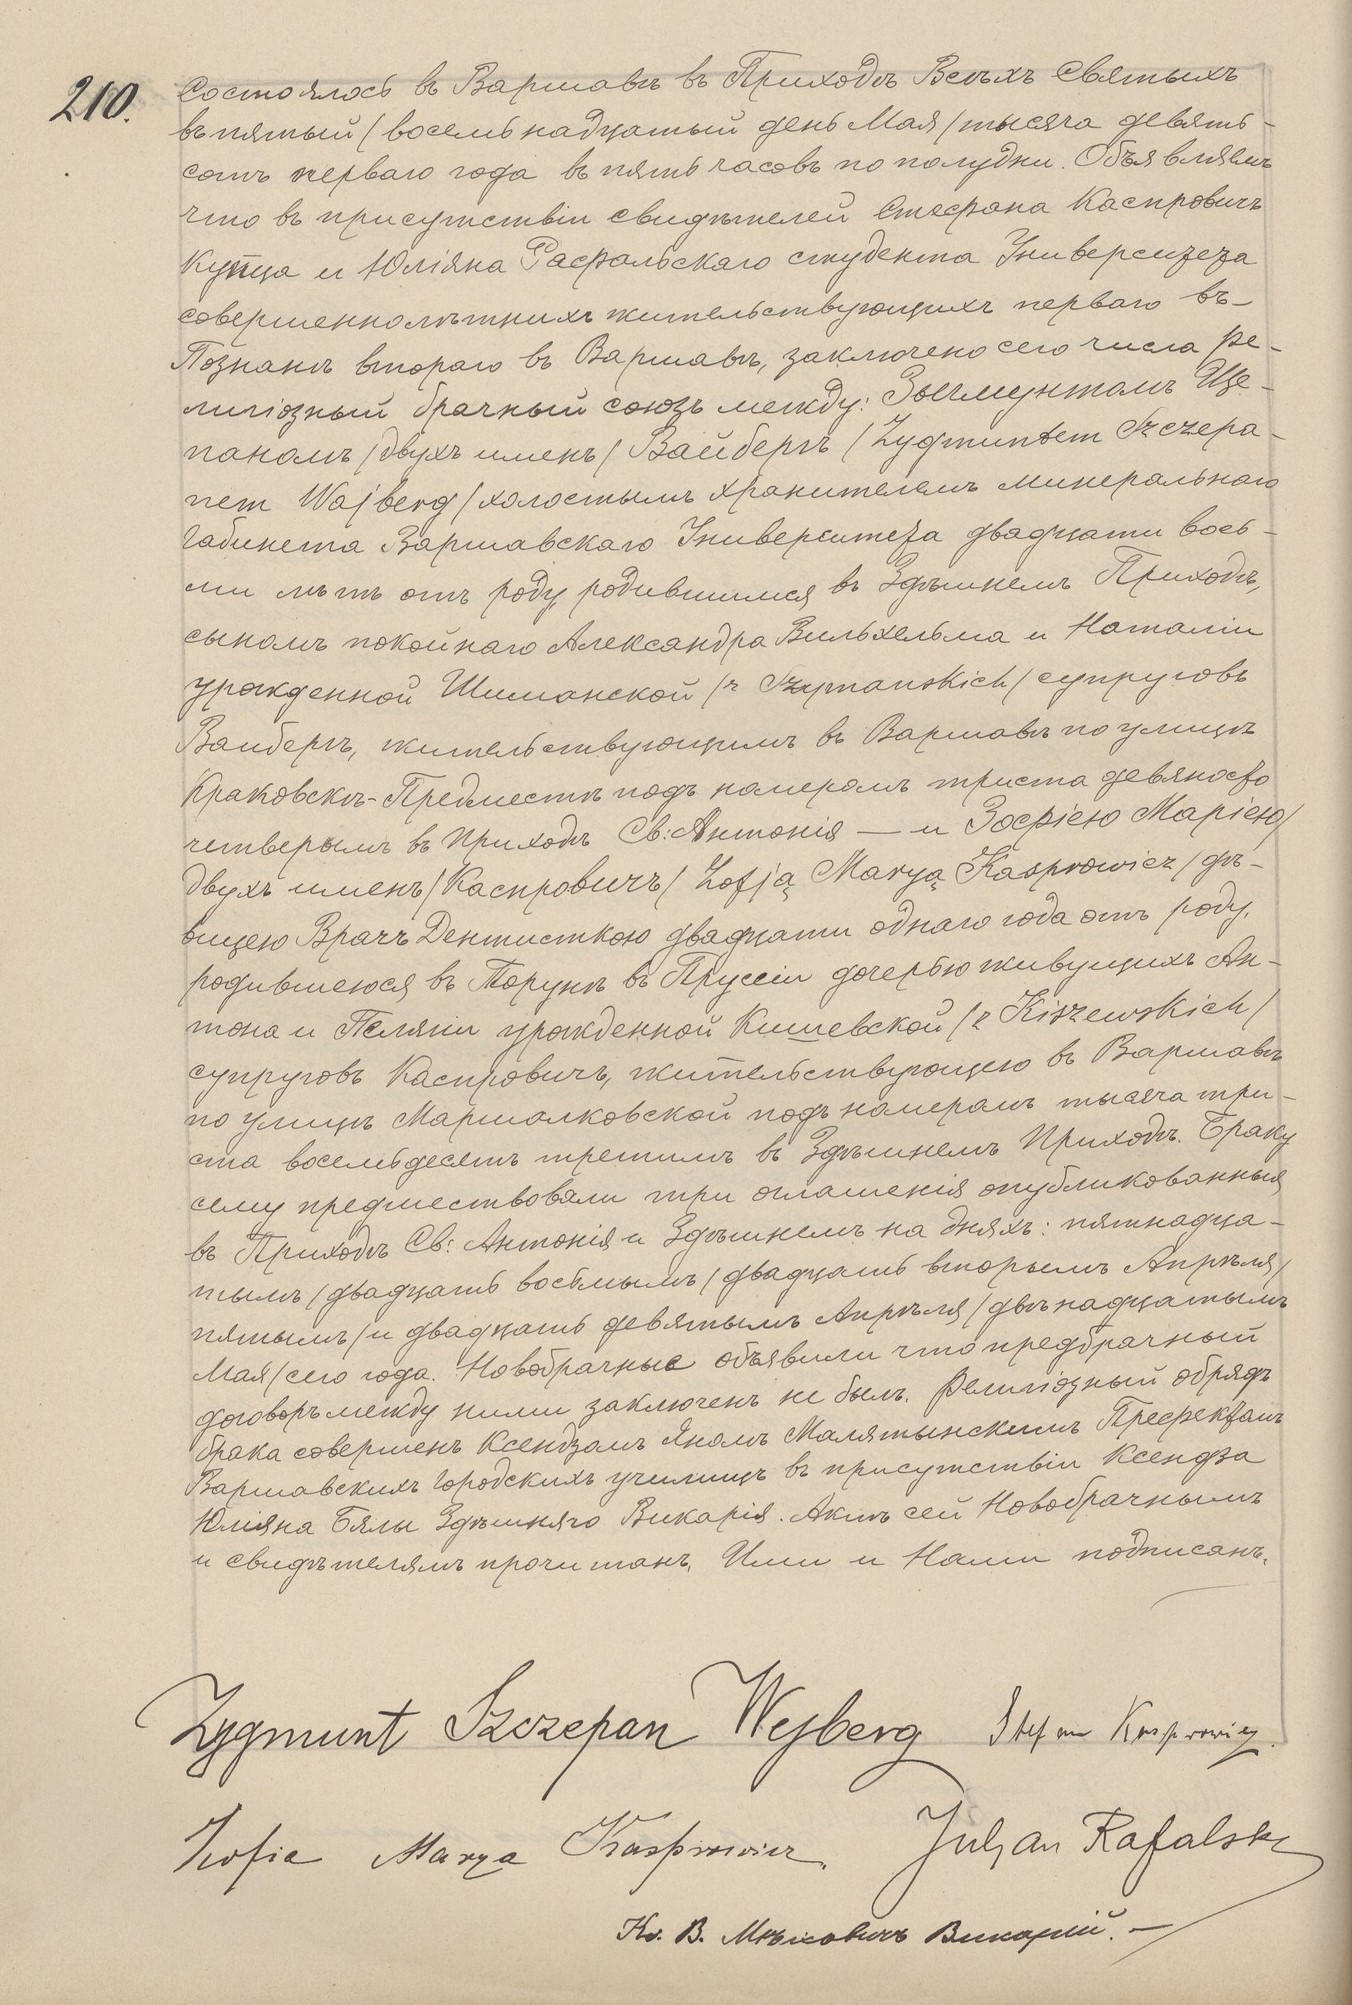 210.
Состоялось въ Варшавѣ въ Приходѣ Всѣхъ Святыхъ
въ пятый / восемьнадцатый день Мая / тысяча девять-
сотъ перваго года въ пять часовъ по полудни. Объявляемъ
что въ присутствіи свидѣтелей Стефана Каспровичъ
Купца и Юліяна Рафальскаго студента Университета
совершеннолѣтнихъ жительствующихъ перваго въ-
Познанѣ втораго въ Варшавѣ, заключено сего числа ре-
лигіозный брачный союзъ между: Зыгмунтомъ Ще-
паномъ / двухъ именъ / Вайбергъ / Zygmuntem Szczepa-
nem Wajberg / холостымъ хранителемъ минеральнаго
Кабинета Варшавскаго Университета двадцати вось-
ми лѣтъ отъ роду, родившимся въ Здѣшнемъ Приходѣ,
сыномъ покойнаго Александра Вильхельма и Наталіи
урожденной Шиманской / z Szymanskich / супруговъ
Вайбергъ, жительствующимъ въ Варшавѣ по улицѣ
Краковскѣ-Предместѣ подъ номеромъ триста девяносто
четверымъ въ Приходѣ Св: Антонія — и Зофіею Маріею /
двухъ именъ / Каспровичъ / Zofją Maryą Kasprowicz / дѣ-
вицею Врачъ Дентисткою двадцати однаго года отъ роду,
родившеюся въ Торунѣ въ Пруссіи дочерью живущихъ Ан-
тона и Пеляіи урожденной Кишевской / z Kiszewskich /
супруговъ Каспровичъ, жительствующею въ Варшавѣ
по улицѣ Маршалковской подъ номерамъ тысяча три-
ста восемьдесятъ третимъ въ Здѣшнемъ Приходѣ. Браку
сему предшествовали три оглашенія опубликованныя
въ Приходѣ Св: Антонія и Здѣшнемъ на дняхъ: пятнадца-
тымъ / двадцать восьмымъ / двадцать вторымъ Апрѣля /
пятымъ / и двадцать девятымъ Апрѣля / двѣнадцатымъ
Мая / сего года. Новобрачные объявили что предбрачный
договоръ между ними заключенъ не былъ. Религіозный обрядъ
брака совершенъ Ксендзомъ Яномъ Малятынскимъ Префектомъ
Варшавскихъ Городскихъ училищъ въ присутствіи Ксендза
Юліяна Бялы Здѣшняго Викарія. Актъ сей Новобрачнымъ
и свидѣтелямъ прочитанъ, Ими и Нами подписанъ.
Zygmunt Szczepan Wejberg Stefan Kasprowicz.
Zofia Marya Kasprowicz. Juljan Rafalski
Кс. В. Викарій.